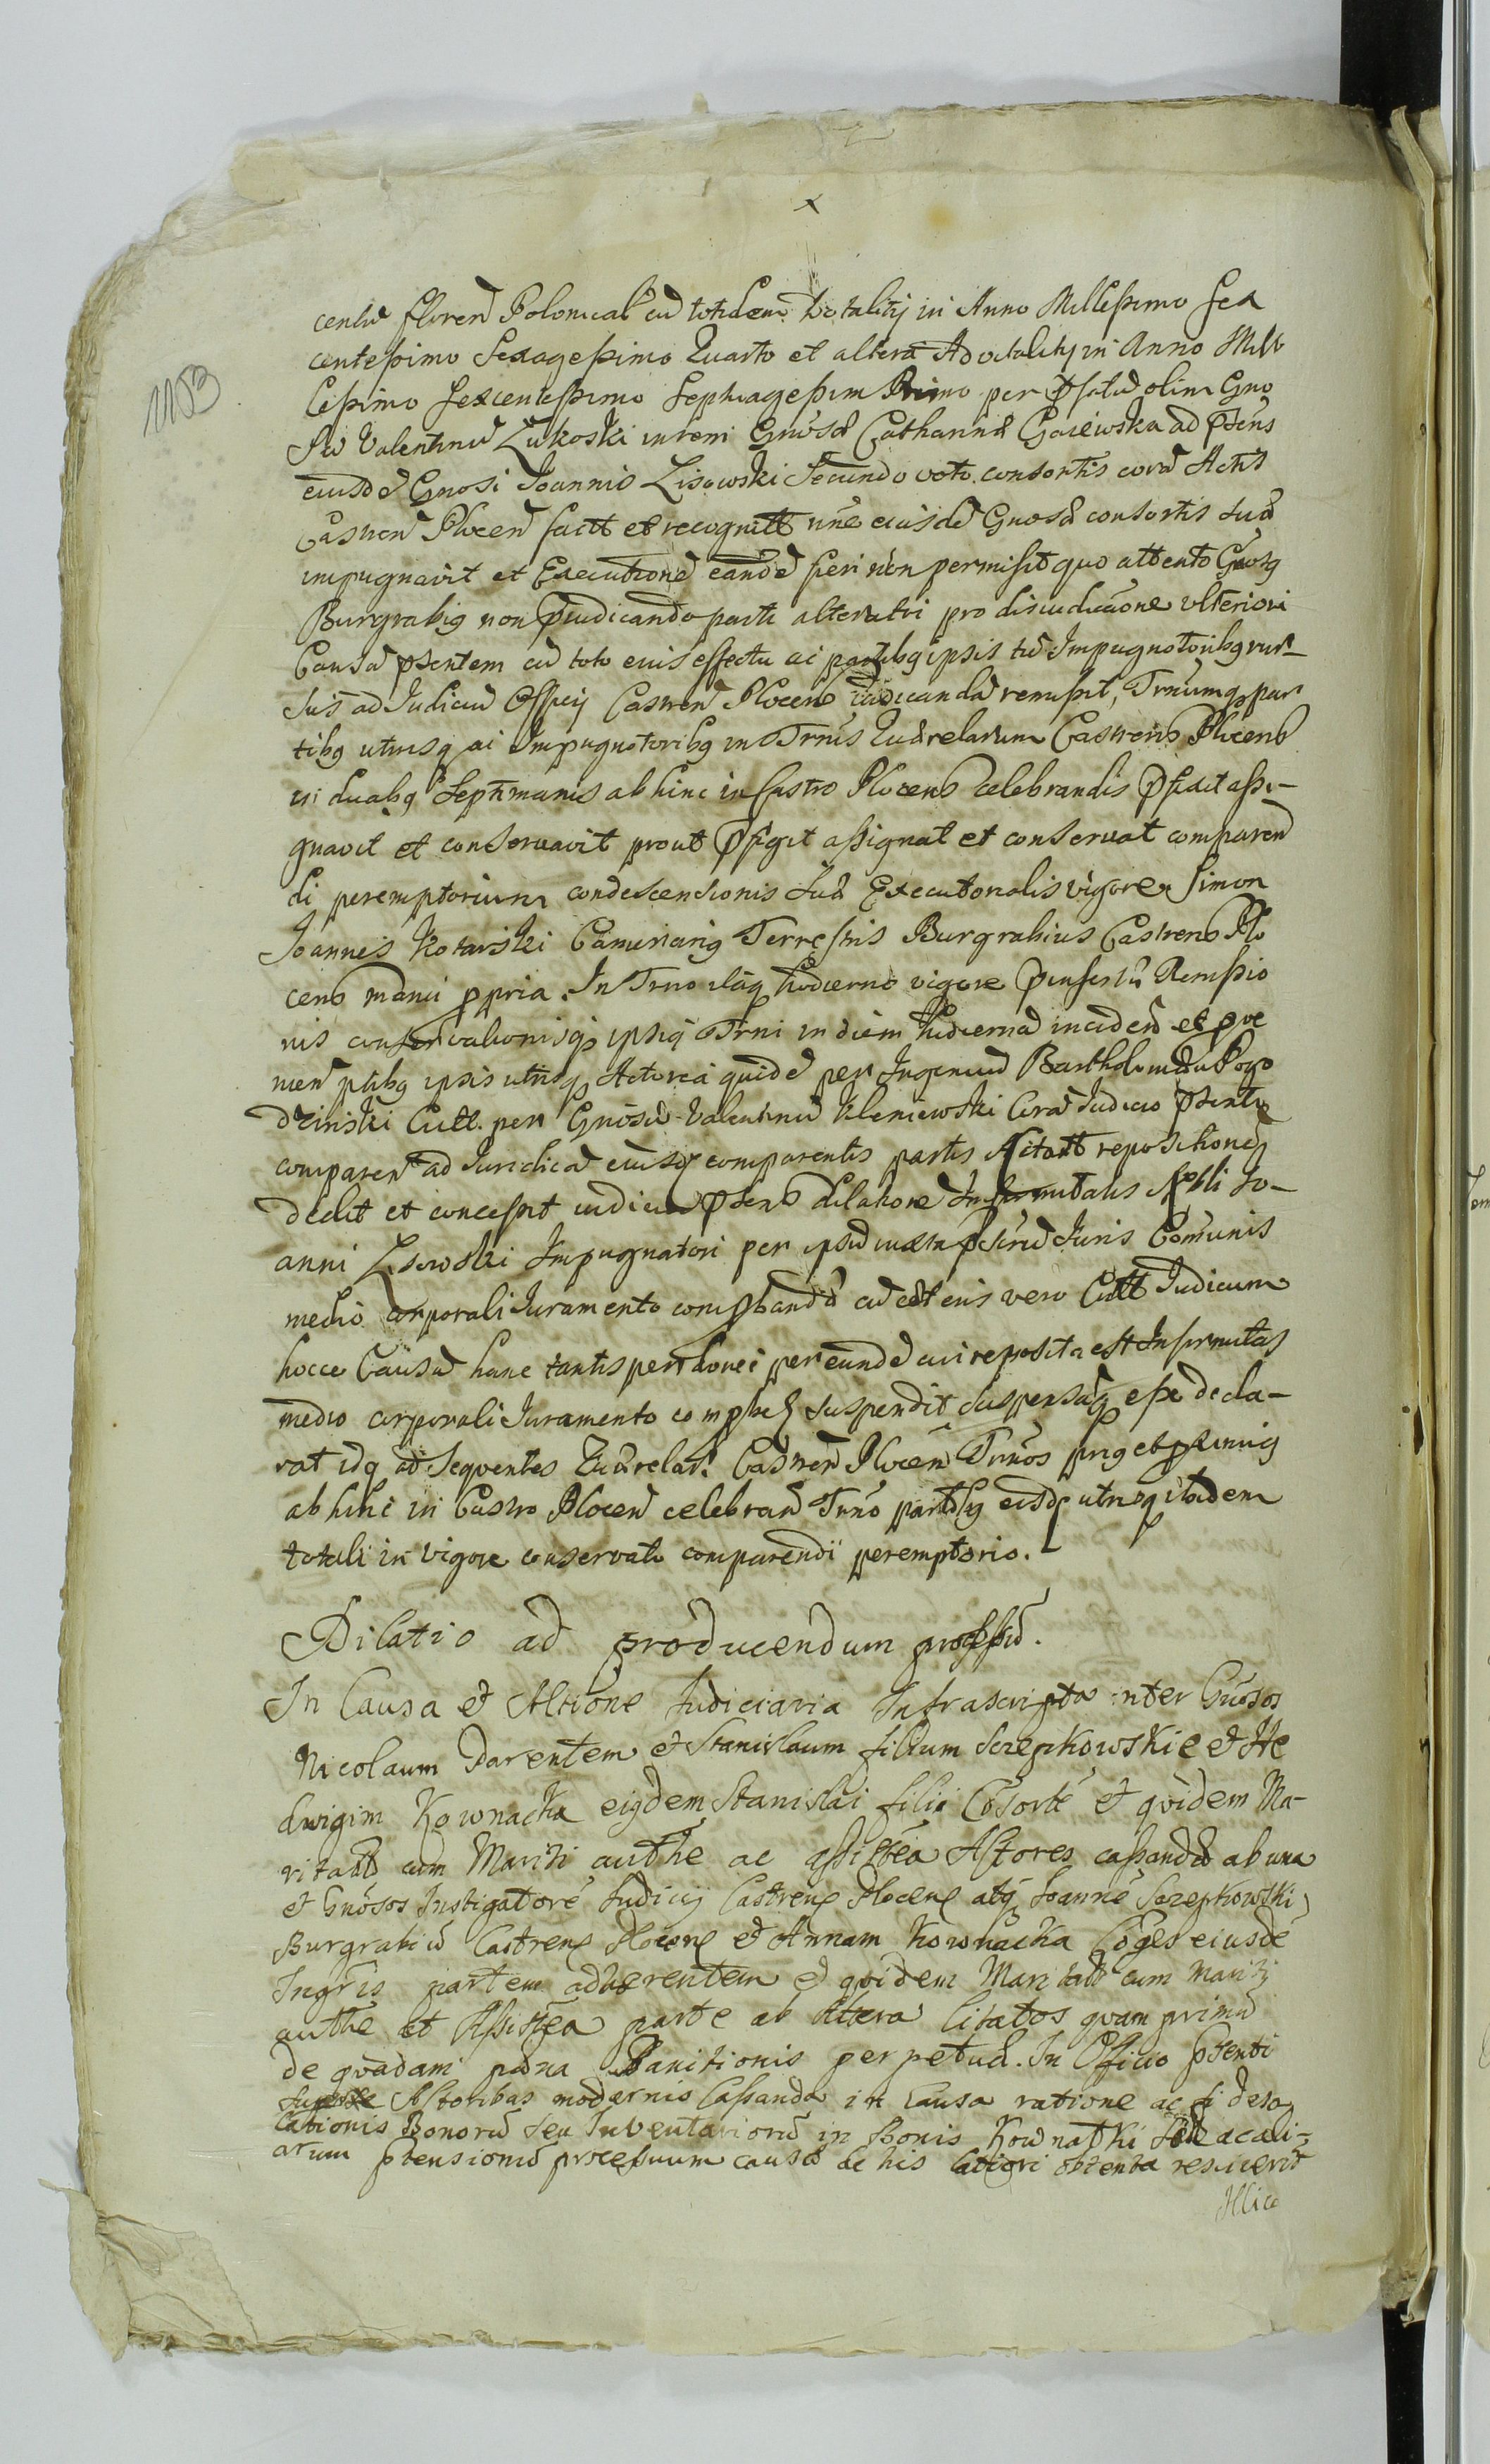 1153
centū floren Polonical cū totidem Dotalitij in Anno Millesimo Sex
centesimo Sexagesimo Quarto et altera Advitalitij in Anno Mill
lesimo Sexcentesimo Septuagesim Primo per Psatū olim Gno
sū Valentinū Zukoski in rem Gnosæ Catharinæ Gaiewska ad Psens
eiusdē Gnosi Joannis Lisowski Secundo voto consortis corā Actis
Castren Plocen factt et recognitt nne eiusdē Gnosæ consortis suæ
impugnavit et Executionē eandē fieri non permisit quo attento Gnosq
Burgrabig non Pjudicando parti alterutri pro disiudicatione ulteriori
Causā psentem cū toto eius effectu ac partibq ipsis tū Impugnatoribq rur-
sus ad Judiciū Officij Castren Plocens iudicandā remisit, Trnumq par
tibq utrisq ac Impugnatoribq in Trnis Quærelarum Castrens Plocens
in duabq Septimanis ab hinc in Castro Plocens celebrandis Pfixit assi-
gnavit et conservavit prout Pfigit assignat et conservat comparen
di peremptorium condescensionis suæ Executorialis vigore Simon
Joannes Kotarski Camerarig Terrestris Burgrabius Castrens Plo
cens manu ppria. In Trno itaq hodierno vigore Pinsertæ Remissio
nis conservationisq ipsiq Trni in diem hodiernā inciden et pve
nien ptibq ipsis utrisq Actorea quidē per Ingenuū Bartholomæū Pogo
drinski Citt. per Gnosū Valentinū Kleniewski Corā Judicio Psenti
comparen ad Juridicā eiusdē comparentis partis Citatt repositionē
dedit et concessit iudiciū Psens dilationē Infirmitatis Nobli Jo-
anni Lisowski Impugnatori per ipsū iuxta Pscrū Juris Comunis
medio corporali Juramento comprobandā cū cæteris vero Citt Judicium
hocce Causā hanc tantisper donec per eundē cui reposita est Infirmitas
medio corporali Juramento comprobet suspendit suspensāq esse decla-
rat idq ad sequentes Quærelar. Castren Plocen Trnos prig et pximig
ab hinc in Castro Plocen celebran Trno partibq eisdē utrisq itidem
totali in vigore conservato comparendi peremptorio.
Dilatio ad producendum processū.
In Causa et Actione Judiciaria Infrascripta inter Gnosos
Nicolaum Parentem et Stanislaum filium Szczepkowskie et He
dvigim Kownacka eiqdem Stanislai filii Cōsortē et qvidem Ma-
ritatā cum Mariti authe ac assistēa Actores cassandā ab una
et Gnosos Instigatorē Judicij Castrens Plocens atq Joannē Szczepkowski
Burgrabiū Castrens Plocens et Annam Kownacka Cōges eiusdē
Ingris partem adhærentem et qvidem Maritatā cum Mariti
authe et Assistēa parte ab Altera Citatos qvam primū
de qvadam pæna Banitionis perpetuæ. In Officio Psenti
Actoribus modernis Cassanda in causa ratione
Bonorū seu Inventariorū in Bonis Kownatki
arum Ptensionū processuum causā de his latiori obtenta rescierit
Illico